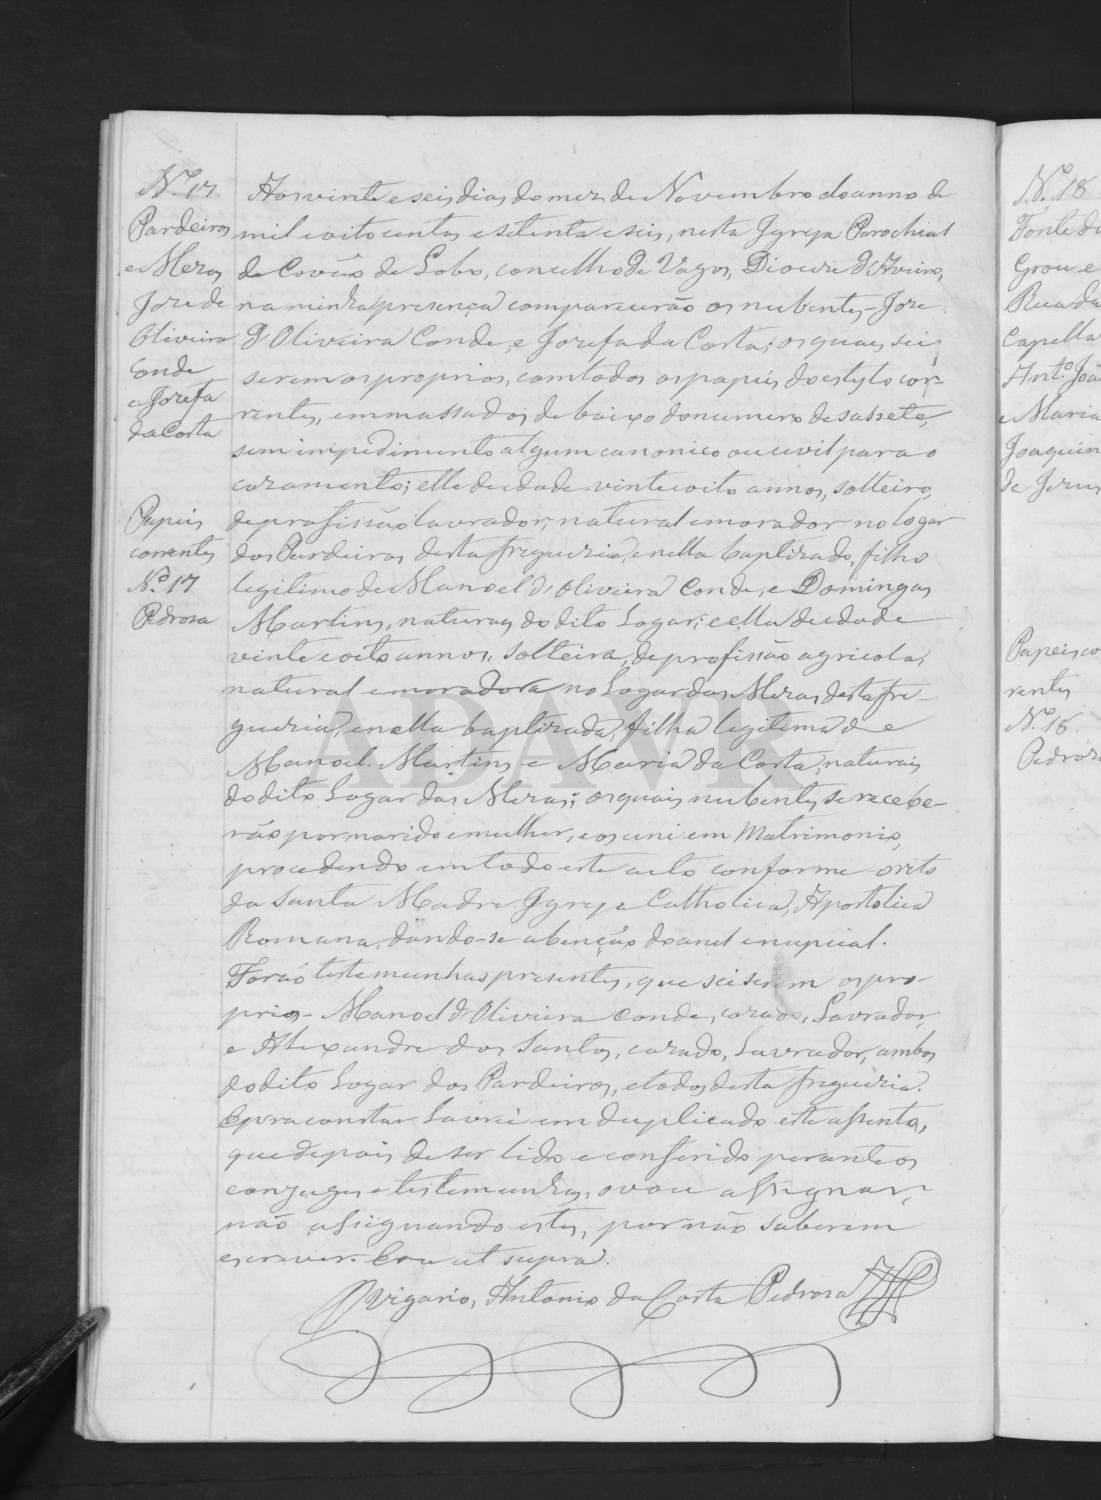 N.º 17
Pardeiros
e Meras
Joze de
Oliveira
Conde
e Jozefa
da Costa
Papeis
correntes
N.º 17
Pedrosa
Aos vinte e seis dias do mez de Novembro do anno de
mil e oito centos e setenta e seis, nesta Igreja Parochial
de Covão do Lobo, concelho de Vagos, Diocese d'Aveiro,
na minha presença comparecerão os nubentes - Joze
d'Oliveira Conde, e Jozefa da Costa; os quaes sei
serem os proprios, com todos os papeis do estylo cor-
rentes, emmassados de baixo do numero desassete,
sem impedimento algum canonico ou civil para o
cazamento; elle de edade vinte oito annos, solteiro,
de profissão lavrador, natural e morador no logar
dos Pardeiros desta freguezia, e nella baptizado, filho
legitimo de Manoel d'Oliveira Conde, e Domingas
Martins, naturaes do dito Logar; e ella de edade
vinte e oito annos, solteira, de profissão agricola,
natural e moradora no Logar das Meras desta fre-
guezia, e nella baptizada, filha legitima de
Manoel Martins e Maria da Costa, naturais
do dito Logar das Meras; os quais nubentes se recebe-
rão por marido e mulher, e os uni em Matrimonio,
procedendo em todo este acto conforme o rito
da Santa Madre Igreja Catholica, Apostolica
Romana, dando-se a benção do anel e nupcial.
Forão testemunhas presentes, que sei serem os pro-
prios - Manoel d'Oliveira Conde, cazado, Lavrador,
e Alexandre dos Santos, cazado, Lavrador, ambos
do dito Logar dos Pardeiros, e todos desta freguezia.
E pra constar Lavrei em duplicado este assento,
que depois de ser lido e conferido perante os
conjuges e testemunhas, o vou assignar,
não assignando estes, por não saberem
escrever. Era ut supra.
O Vigario, Antonio da Costa Pedrosa
N.º 18
Fonte de
Grou e
Rua da
Capella
Ant.º Joã
e Maria
Joaquin
de Jesus
Papeis co
rentes
N.º 18
Pedrosa
ADAVR